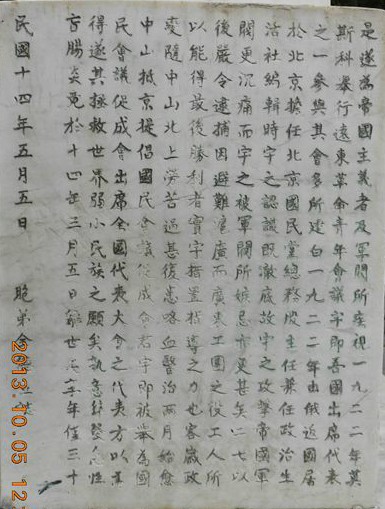 是遂為帝國主義者及軍閥所視一九二二年莫
斯科舉行遠東革命青年會議宇即吾國出席代表
之一參與其會多所建白一九二二年由俄返國居
於北京擔任北京國民黨總務股主任兼任政治生
活社編輯時宇之認識既澈底故宇之攻擊帝國軍
閥更沉痛而宇之被軍閥所嫉忌亦更甚矣二七以
後嚴令逮捕因避難滬廣而廣東工團之役工人所
以能得最後勝利者實宇措置指導之力也客歲政
變隨中山北上勞苦過甚復患咯血醫治兩月始愈
中山抵京提倡國民會議促成會君宇即被舉為國
民會議促成會出席全國代表大會之代表方以為
得遂其拯救世界弱小民族之願矣孰意急性
盲腸炎竟於十四年三月五日辭世享年僅三十
民國十四年五月五日 弟全
2013.10.05 12: